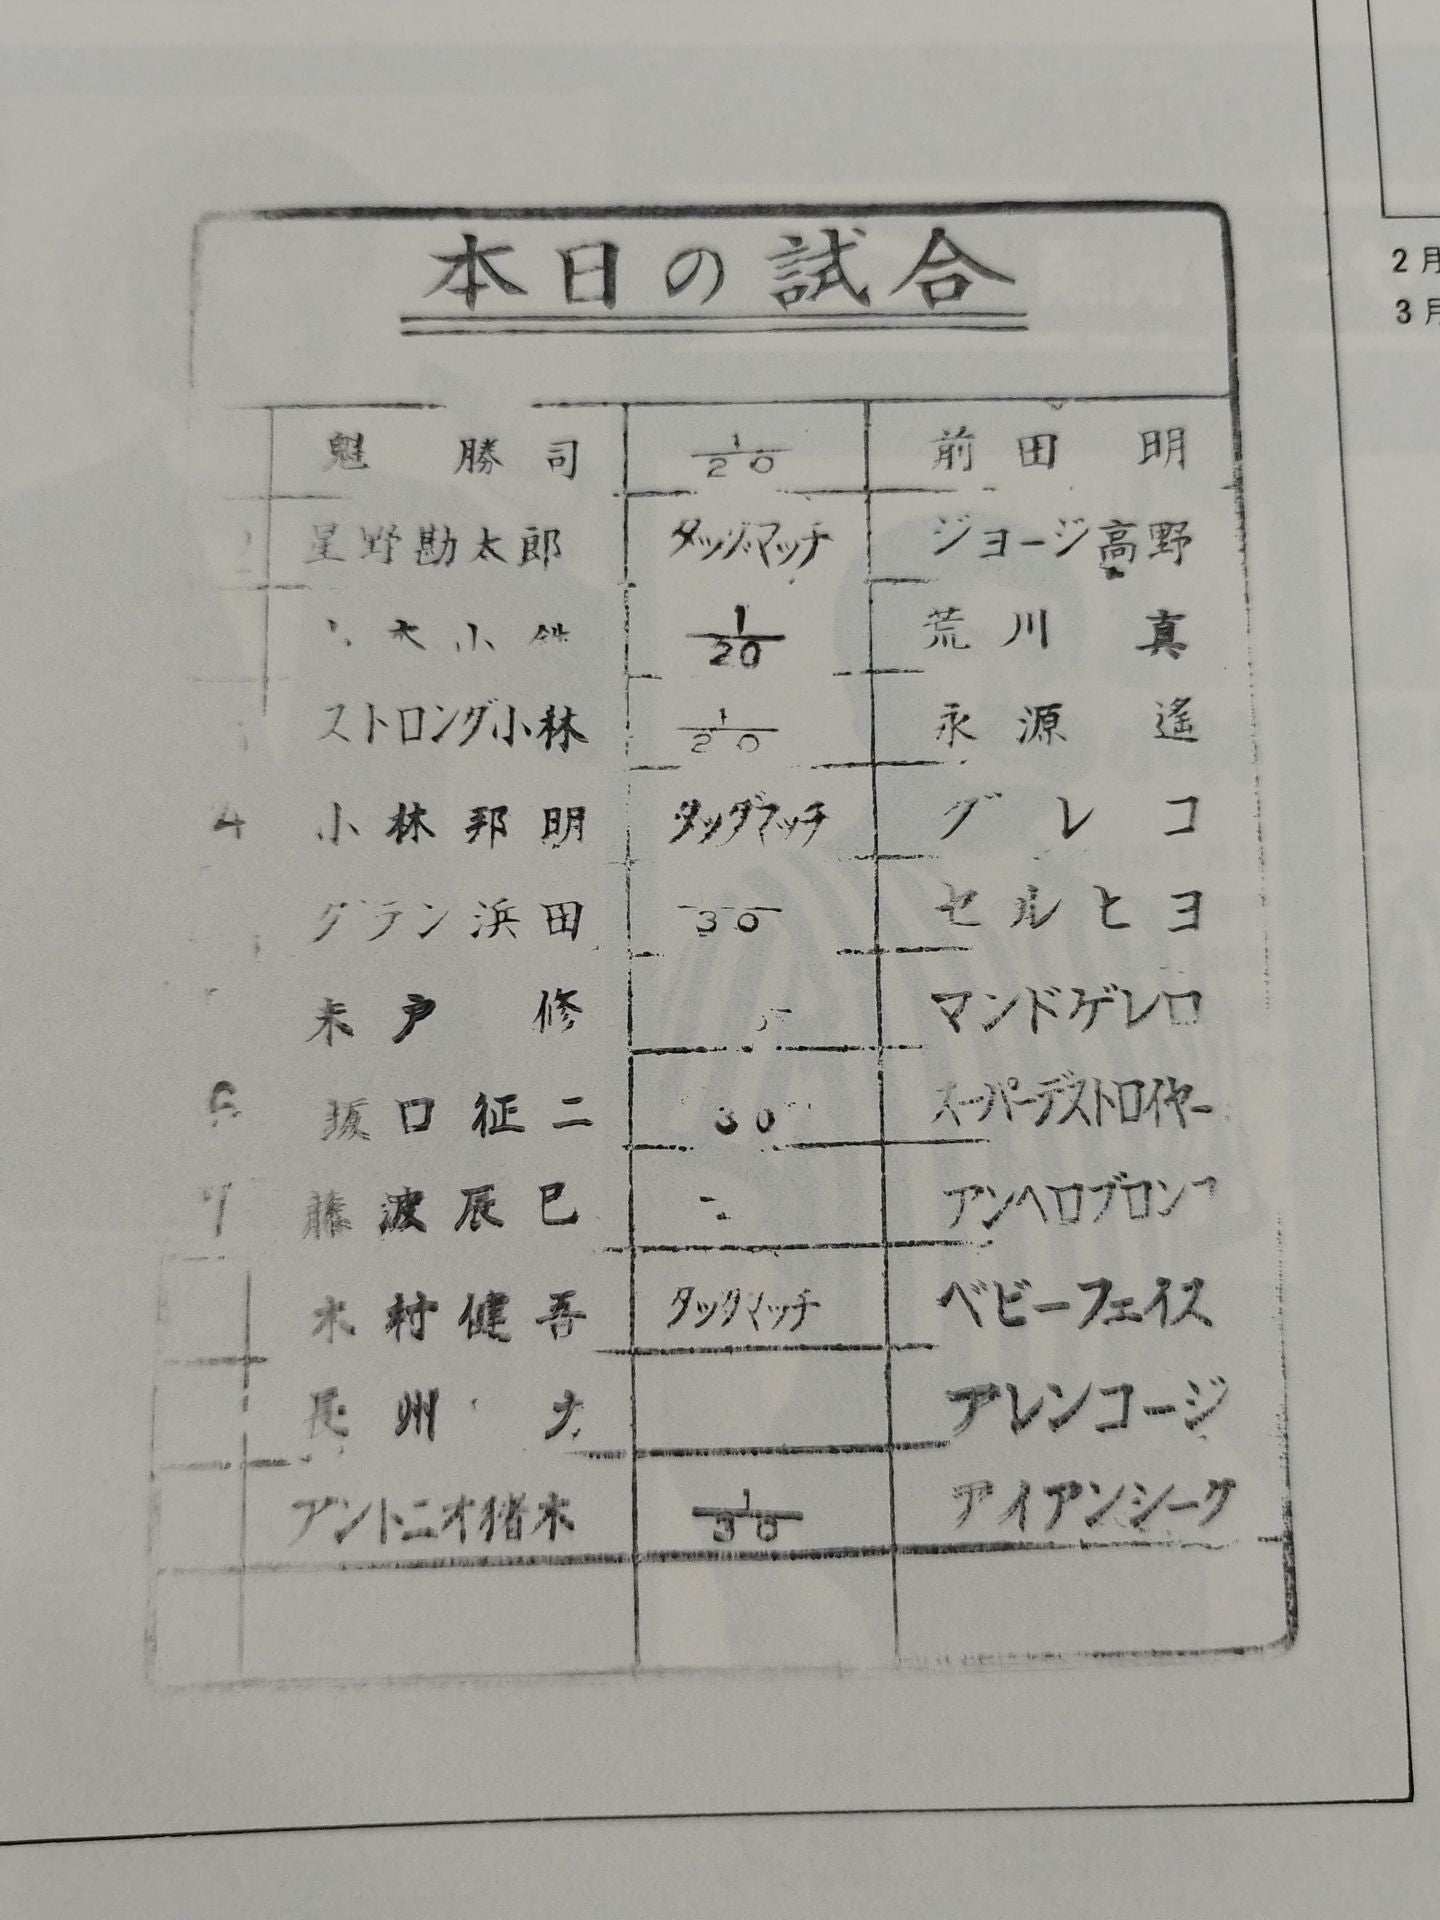 本日の試合
魁 勝司 1/20 前田 明
2 星野勘太郎 タッグマッチ ジョージ高野
小 1/20 荒川 真
ストロング小林 1/20 永源 遙
4 小林邦明 タッグマッチ グレコ
グラン浜田 30 セルヒヨ
木戸 修 マンドゲレロ
6 坂口征二 30 スーパーデストロイヤー
7 藤波辰巳 アンヘロブロンコ
木村健吾 タッグマッチ ベビーフェイス
長州 アレンコージ
アントニオ猪木 1/30 アイアンシーク
2月
3月